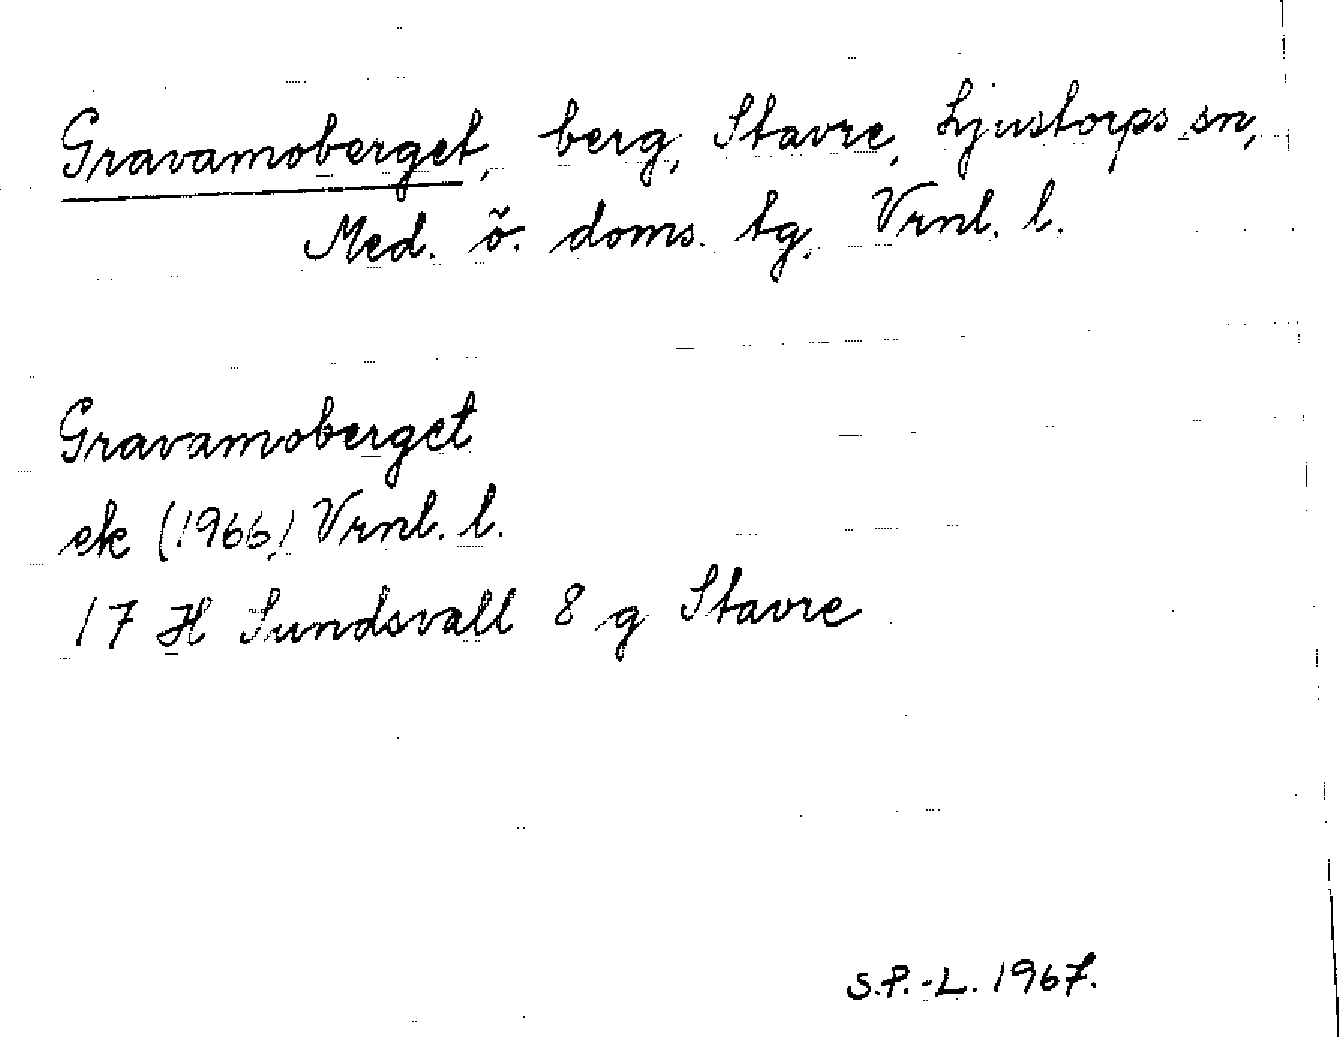 Gravamoberget, berg, Stavre, Ljustorps sn,
Med. ö. doms. tg, Vrnl. l.
Gravamoberget
ek (1966) Vrnl. l.
17 H Sundsvall 8 g Stavre
S.P.-L. 1967.